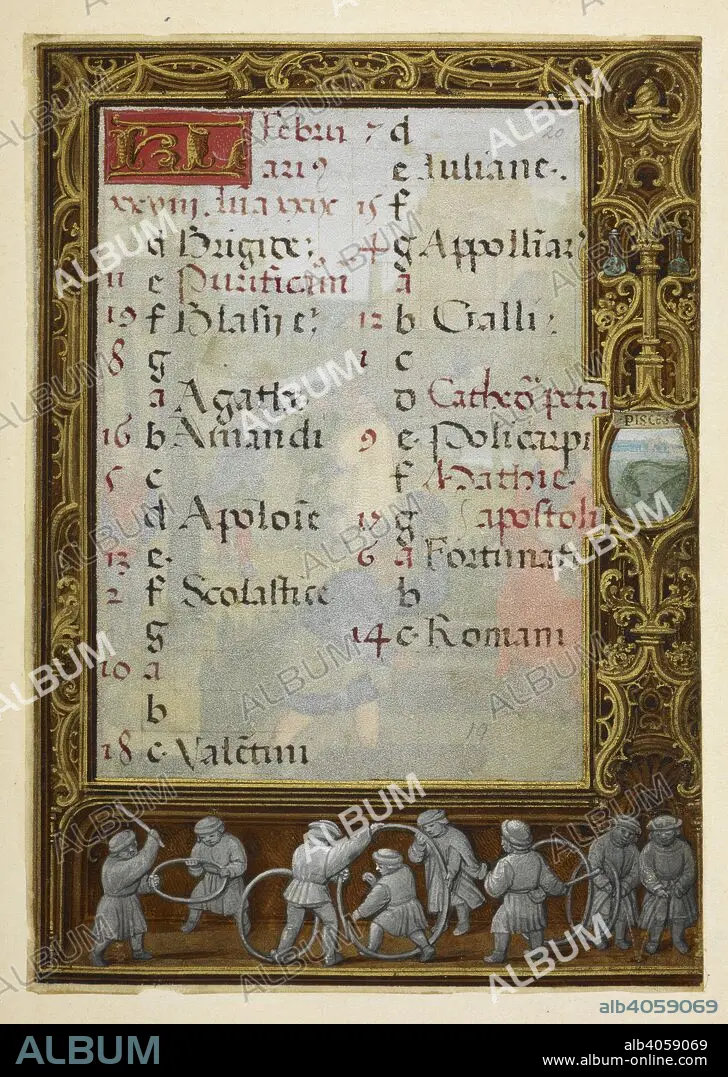 KL Februarius
xxviii. Lua xxix
d Brigide
11 e Purificatio
19 f Blasii e
8 g
a Agathe
16 b Amandi
5 c
d Apolonie
13 e
2 f Scolastice
g
10 a
b
18 c Valetini
7 d
e Iuliane
15 f
4 g
a
12 b Galli
1 c
d Cathed petri
9 e Policarpi
f Mathie
17 g apostoli
6 a Fortunati
b
14 c Romani
20
19
PISCES
ALBUM
alb4059069
ALBUM
alb4059069
www.album-online.com